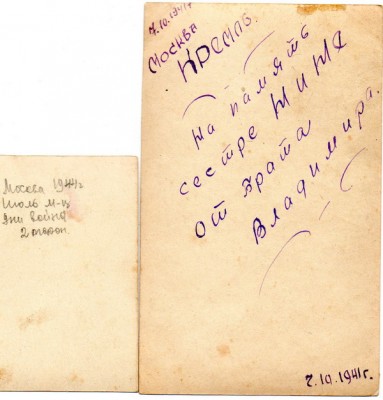 Москва 1941г
Июль м-ц
война
7.10.1941г
Москва
Кремль.
На память
сестре Нине
от брата
Владимира.
7.10.1941г.